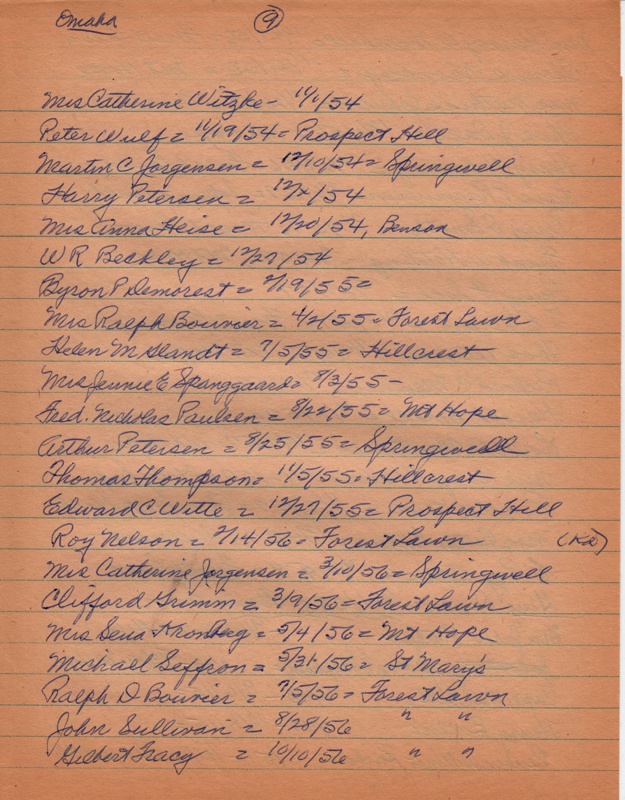 Omaha 9
Mrs Catherine Witzke - 11/1/54
Peter Wulf = 11/19/54 = Prospect Hill
Martin C Jorgensen = 12/10/54 = Springwell
Harry Petersen = 12/ /54
Mrs Anna Heise = 12/20/54, Benson
W R Beckley = 12/27/54
Byron P Demorest = 2/19/55 =
Mrs Ralph Bouvier = 4/2/55 = Forest Lawn
Helen M Glandt = 7/5/55 = Hillcrest
Mrs Jennie E Spanggaard = 8/3/55 -
Fred. Nicholas Paulsen = 8/22/55 = Mt Hope
Arthur Petersen = 8/25/55 = Springwell
Thomas Thompson = 11/5/55 = Hillcrest
Edward C Witte = 12/27/55 = Prospect Hill
Roy Nelson = 2/14/56 = Forest Lawn
Mrs Catherine Jorgensen = 3/10/56 = Springwell
Clifford Grimm = 3/9/56 = Forest Lawn
Mrs Sena = 5/4/56 = Mt Hope
Michael Seffron = 5/31/56 = St Mary's
Ralph D Bouvier = 7/5/56 = Forest Lawn
John Sullivan = 8/28/56 " "
Gilbert Tracy = 10/10/56 " "